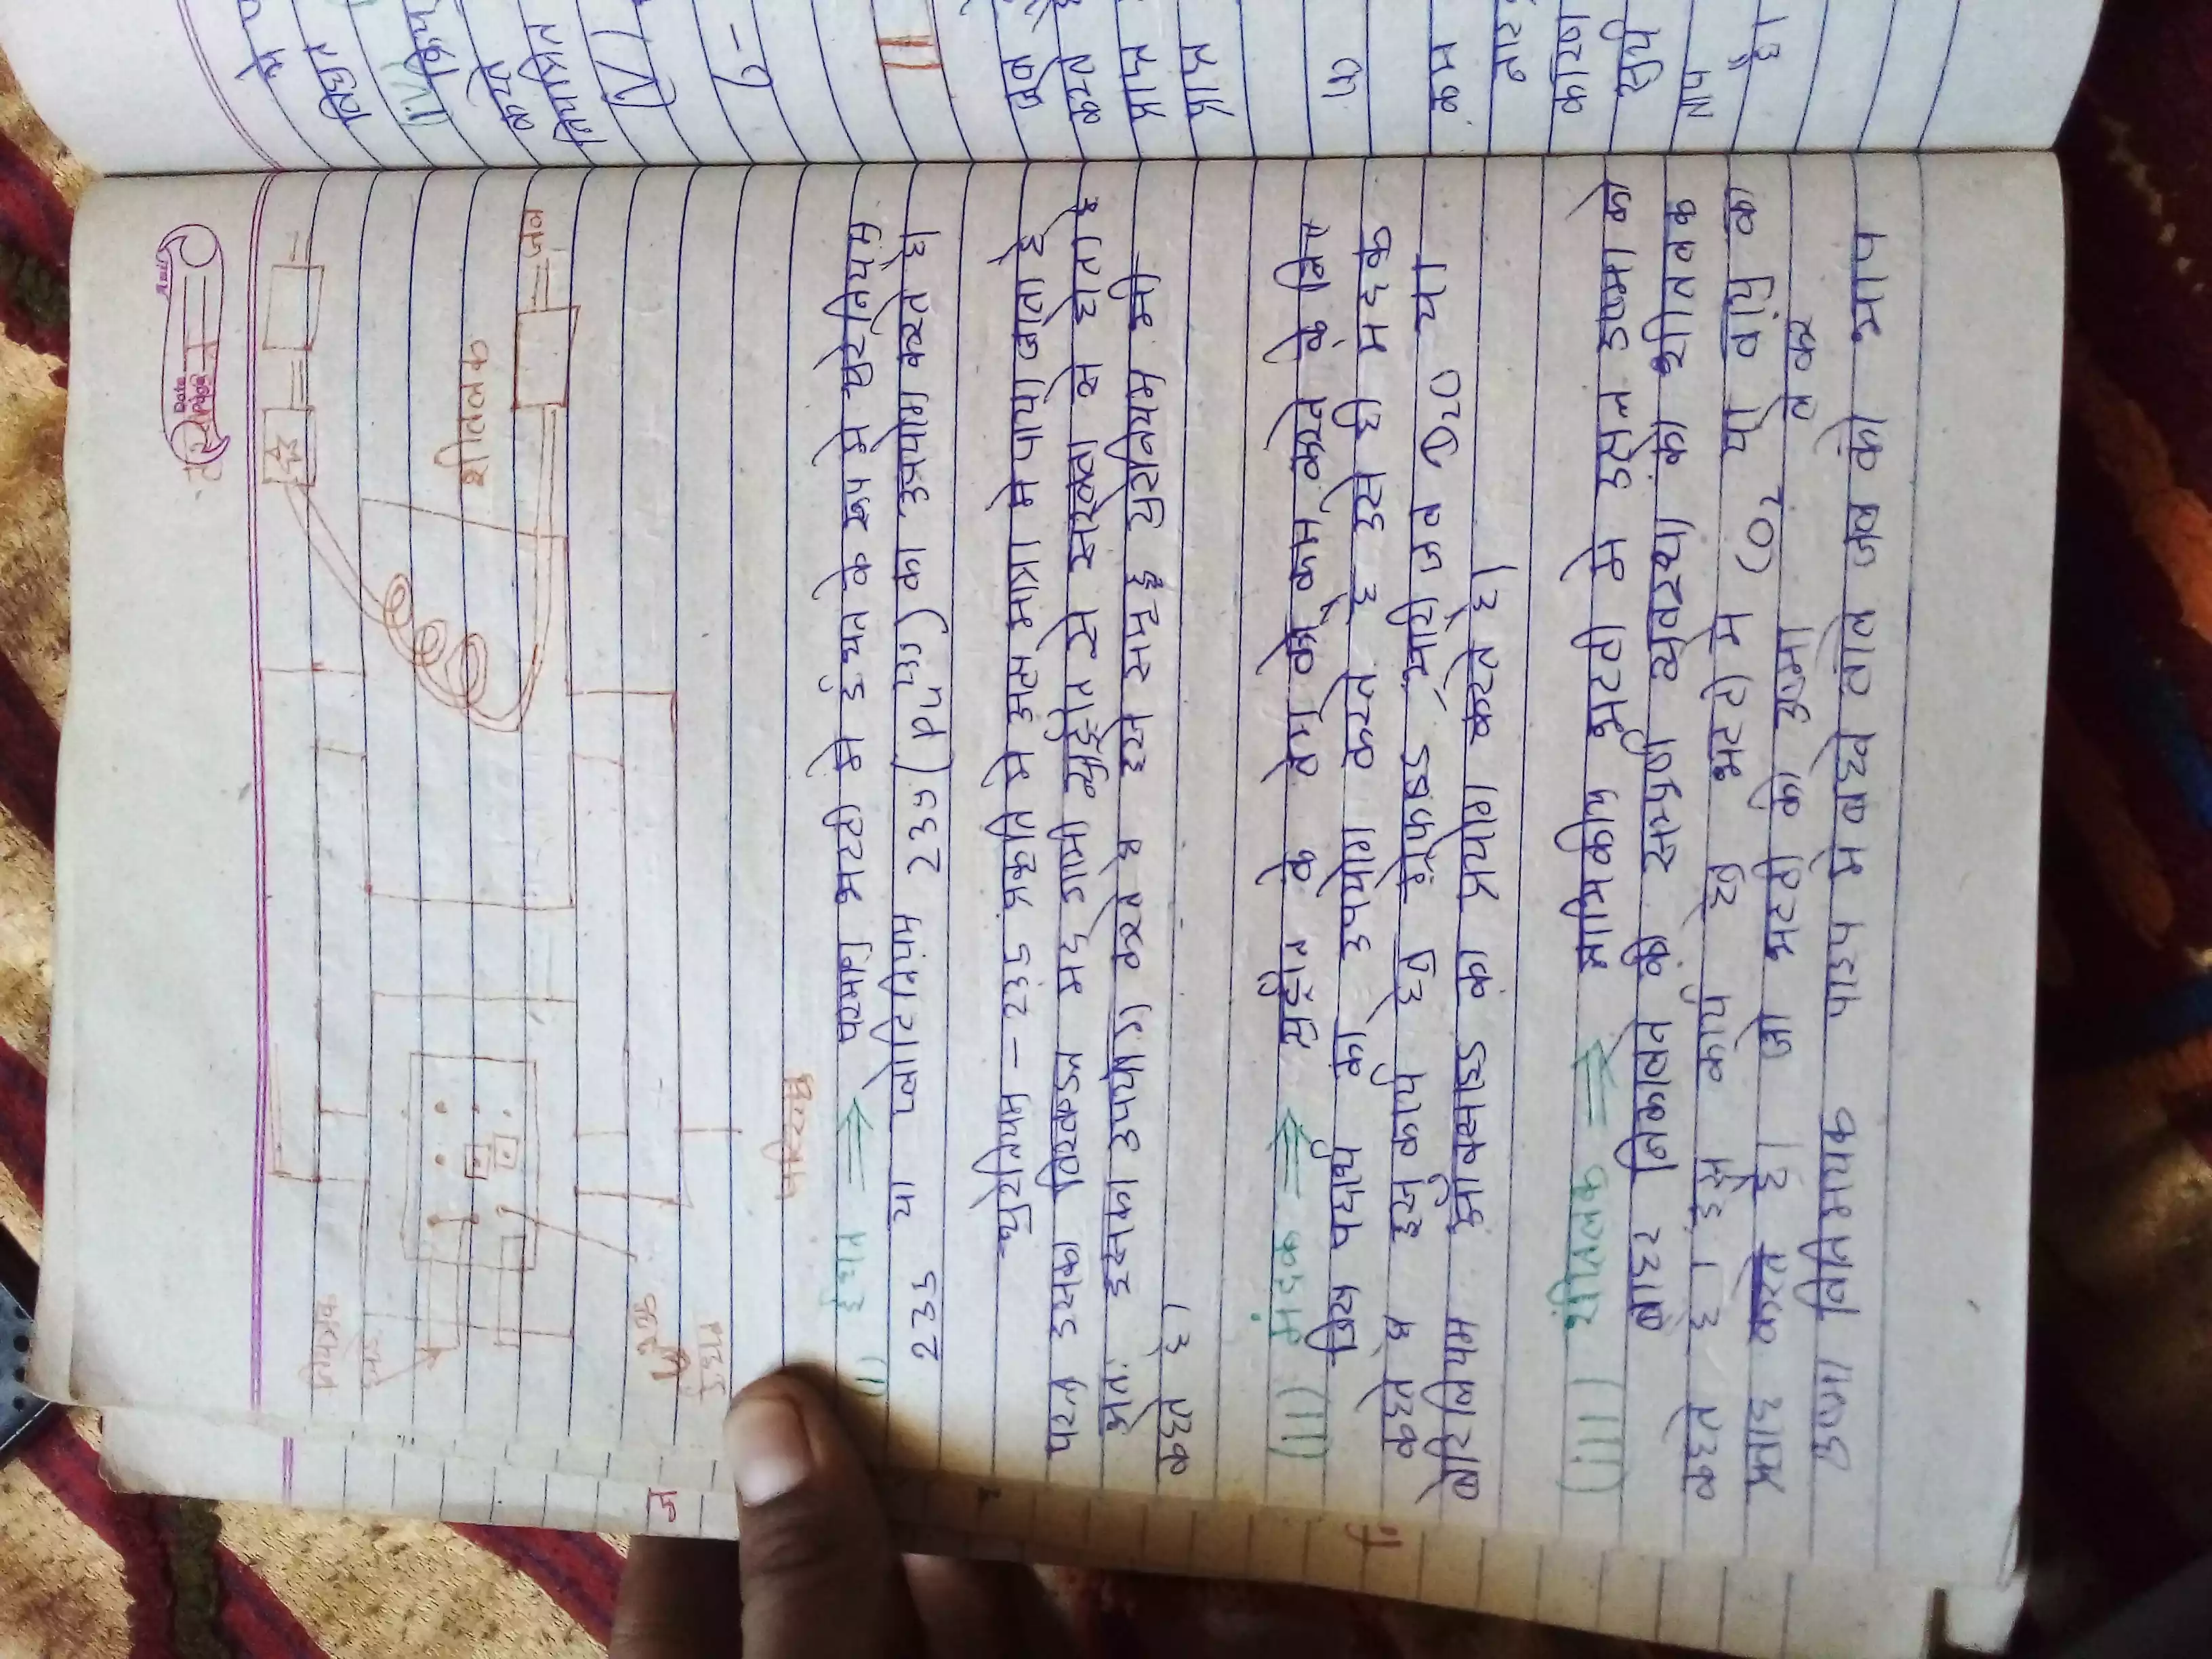 Date
Page
नियंत्रक
छड़े
शीतलक
जल
परिरक्षक
(i) ईंधन ⇒ परमाणु भट्टी मे ईंधन के रूप मे यूरेनियम
235 या प्लोटिनियम 239 (Pu²³⁹) का उपयोग करते है।
यूरेनियम – 235 प्रकृति मे अल्प मात्रा मे पाया जाता है
परन्तु उसका विखण्डन मंद गामी न्यूट्रॉन से सरलता से होता है
अतः इसका उपयोग करते है इसे समृद्ध यूरेनियम भी
कहते है।
(ii) मंदक ⇒ न्यूट्रॉन के वेग को कम करने के लिए
जिस पदार्थ का उपयोग करते है उसे ही मंदक
कहते है इस कार्य हेतु ग्रेफाइड, भारी जल D₂O या
बेरिलियम ऑक्साइड का प्रयोग करते है।
(iii) शीतलक ⇒ नाभिकीय भट्टी मे उत्पन्न उष्मा को
बाहर निकालने की सम्पूर्ण व्यवस्था को शीतलक
कहते है। इस कार्य हेतु भट्टी मे CO₂ या वायु का
प्रवाह करते है। जो भट्टी की उष्मा ले कर
उष्मा विनिमायक पाइप मे बहने वाले जल को भाप
मे
विद्युत
(IV)
करते
नियंत्रित
(V)
6-
करते
प्राप्त
प्राप्त
कम
कारण
है।